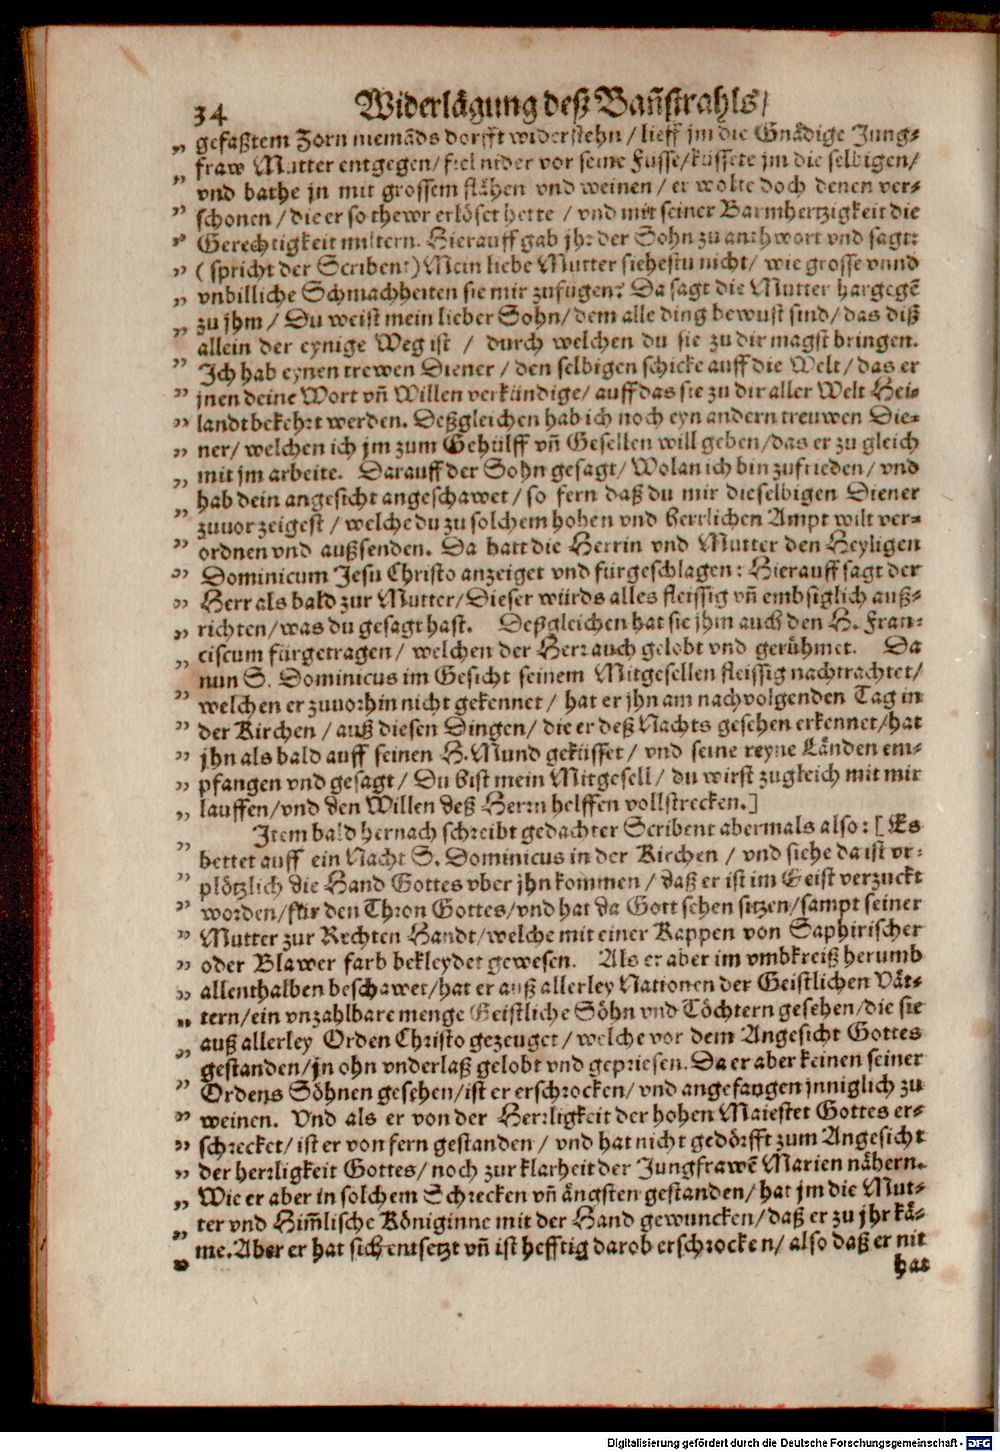 34 Widerlägung deß Bañstrahls/
„ gefaßtem Zorn niemãds dorfft widerstehn / lieff jm die Gnädige Jung⸗
„ fraw Mutter entgegen/ fiel nider vor seine Füsse/ küssete jm die selbigen/
vnd bathe jn mit grossem flähen vnd weinen / er wolte doch denen ver⸗
„ schonen / die er so thewr erlöset hette / vnd mit seiner Barmhertzigkeit die
„ Gerechtigkeit miltern. Hierauff gab jhr der Sohn zu anthwort vnd sagt:
„ ( spricht der Scribent) Mein liebe Mutter siehestu nicht/ wie grosse vnnd
„ vnbilliche Schmachheiten sie mir zufügen? Da sagt die Mutter hargegẽ
„ zu jhm / Du weist mein lieber Sohn/ dem alle ding bewust sind/ das diß
allein der eynige Weg ist / durch welchen du sie zu dir magst bringen.
„ Ich hab eynen trewen Diener / den selbigen schicke auff die Welt / das er
„ jnen deine Wort vñ Willen verkündige/ auff das sie zu dir aller Welt Hei⸗
„ landt bekehrt werden. Deßgleichen hab ich noch eyn andern treuwen Die⸗
„ ner/ welchen ich jm zum Gehülff vñ Gesellen will geben/ das er zu gleich
„ mit jm arbeite. Darauff der Sohn gesagt/ Wolan ich bin zufrieden/ vnd
hab dein angesicht angeschawet / so fern daß du mir dieselbigen Diener
„ zuuor zeigest / welche du zu solchem hohen vnd herrlichen Ampt wilt ver⸗
„ ordnen vnd außsenden. Da hatt die Herrin vnd Mutter den Heyligen
„ Dominicum Jesu Christo anzeiget vnd fürgeschlagen: Hierauff sagt der
„ Herr als bald zur Mutter/ Dieser würds alles fleissig vñ embsiglich auß⸗
„ richten/ was du gesagt hast. Deßgleichen hat sie jhm auch den H. Fran⸗
„ ciscum fürgetragen/ welchen der Herr auch gelobt vnd gerühmet. Da
nun S. Dominicus im Gesicht seinem Mitgesellen fleissig nachtrachtet/
„ welchen er zuuorhin nicht gekennet / hat er jhn am nachvolgenden Tag in
„ der Kirchen / auß diesen Dingen/ die er deß Nachts gesehen erkennet/ hat
„ jhn als bald auff seinen H. Mund geküsset/ vnd seine reyne Länden em⸗
„ pfangen vnd gesagt/ Du bist mein Mitgesell/ du wirst zugleich mit mir
„ lauffen/ vnd den Willen deß Herrn helffen vollstrecken.]
Item bald hernach schreibt gedachter Scribent abermals also: [ Es
„ bettet auff ein Nacht S. Dominicus in der Kirchen / vnd siehe da ist vr⸗
„ plötzlich die Hand Gottes vber jhn kommen / daß er ist im Geist verzuckt
„ worden/ für den Thron Gottes/ vnd hat da Gott sehen sitzen/ sampt seiner
„ Mutter zur Rechten Handt/ welche mit einer Kappen von Saphirischer
„ oder Blawer farb bekleydet gewesen. Als er aber im vmbkreiß herumb
„ allenthalben beschawet/ hat er auß allerley Nationen der Geistlichen Vät⸗
„ tern/ ein vnzahlbare menge Geistliche Söhn vnd Töchtern gesehen/ die sie
„ auß allerley Orden Christo gezeuget/ welche vor dem Angesicht Gottes
gestanden/ jn ohn vnderlaß gelobt vnd gepriesen. Da er aber keinen seiner
„ Ordens Söhnen gesehen/ ist er erschrocken/ vnd angefangen jnniglich zu
„ weinen. Vnd als er von der Herrligkeit der hohen Maiestet Gottes er⸗
„ schrecket/ ist er von fern gestanden / vnd hat nicht gedörfft zum Angesicht
„ der herrligkeit Gottes/ noch zur klarheit der Jungfrawẽ Marien nähern.
„ Wie er aber in solchem Schrecken vñ ängsten gestanden/ hat jm die Mut⸗
„ ter vnd Him̃lische Königinne mit der Hand gewuncken/ daß er zu jhr kä⸗
„ me. Aber er hat sich entsetzt vñ ist hefftig darob erschrocken/ also daß er nit
„ hat
Digitalisierung gefördert durch die Deutsche Forschungsgemeinschaft - DFG